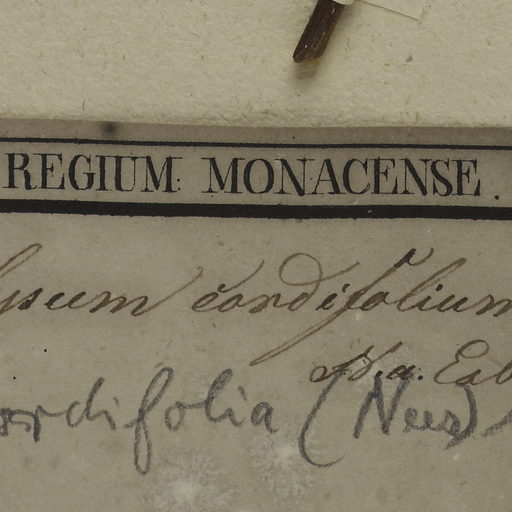 REGIUM MONACENSE.
cordifolium
N. a. Es
ordifolia (Nees)